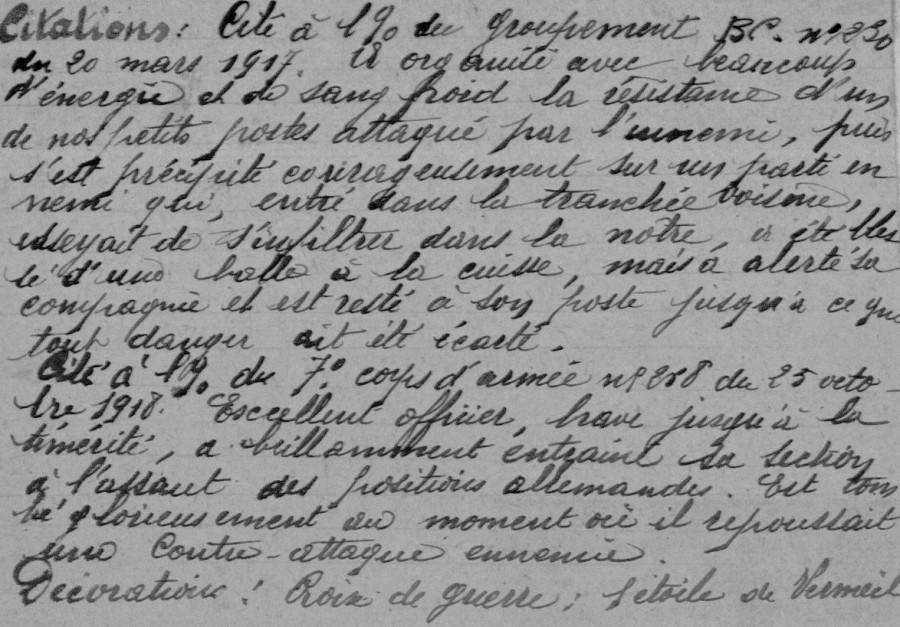 Citations: Cité à l'o/ du groupement B.C. n° 230
du 20 mars 1917. A organisé avec beaucoup
d'énergie et de sang froid la résistance d'un
de nos petits postes attaqué par l'ennemi, puis
s'est précipité courageusement sur un parti en
nemi qui, entré dans la tranchée voisine,
essayait de s'infiltrer dans la nôtre, a été bles
sé d'une balle à la cuisse, mais a alerté sa
compagnie et est resté à son poste jusqu'à ce que
tout danger ait été écarté.
Cité à l'o/ du 7° corps d'armée n° 258 du 25 octo-
bre 1918. Excellent officier, brave jusqu'à la
témérité, a brillamment entraîné sa section
à l'assaut des positions allemandes. Est tom
bé glorieusement au moment où il repoussait
une contre-attaque ennemie.
Décorations: Croix de guerre; étoile de Vermeil